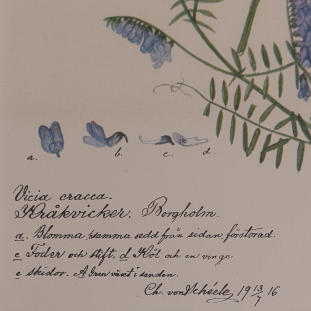 a. b. c. d.
Vicia cracca.
Kråkvicker. Borgholm.
a. Blomma, samma sedd från sidan, förstorad.
c Foder och stift. d Köl och en vinge
e skidor. Även växt i sanden.
Ch. von Schéele, 19 13/7 16